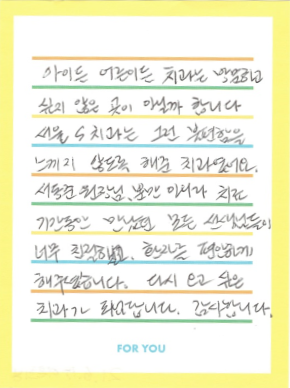 아이든 어른이든 치과는
쉽지 않은 곳이 아닐까 합니다
서울 S 치과는 그런 불편함을
느끼지 않도록 해준 치과였어요.
서동준 원장님, 치료
기간동안 만났던 모든 선생님들이
너무 친절하고, 환자를 편안하게
해주셨습니다. 다시 오고 싶은
치과가 되었답니다. 감사합니다.
FOR YOU